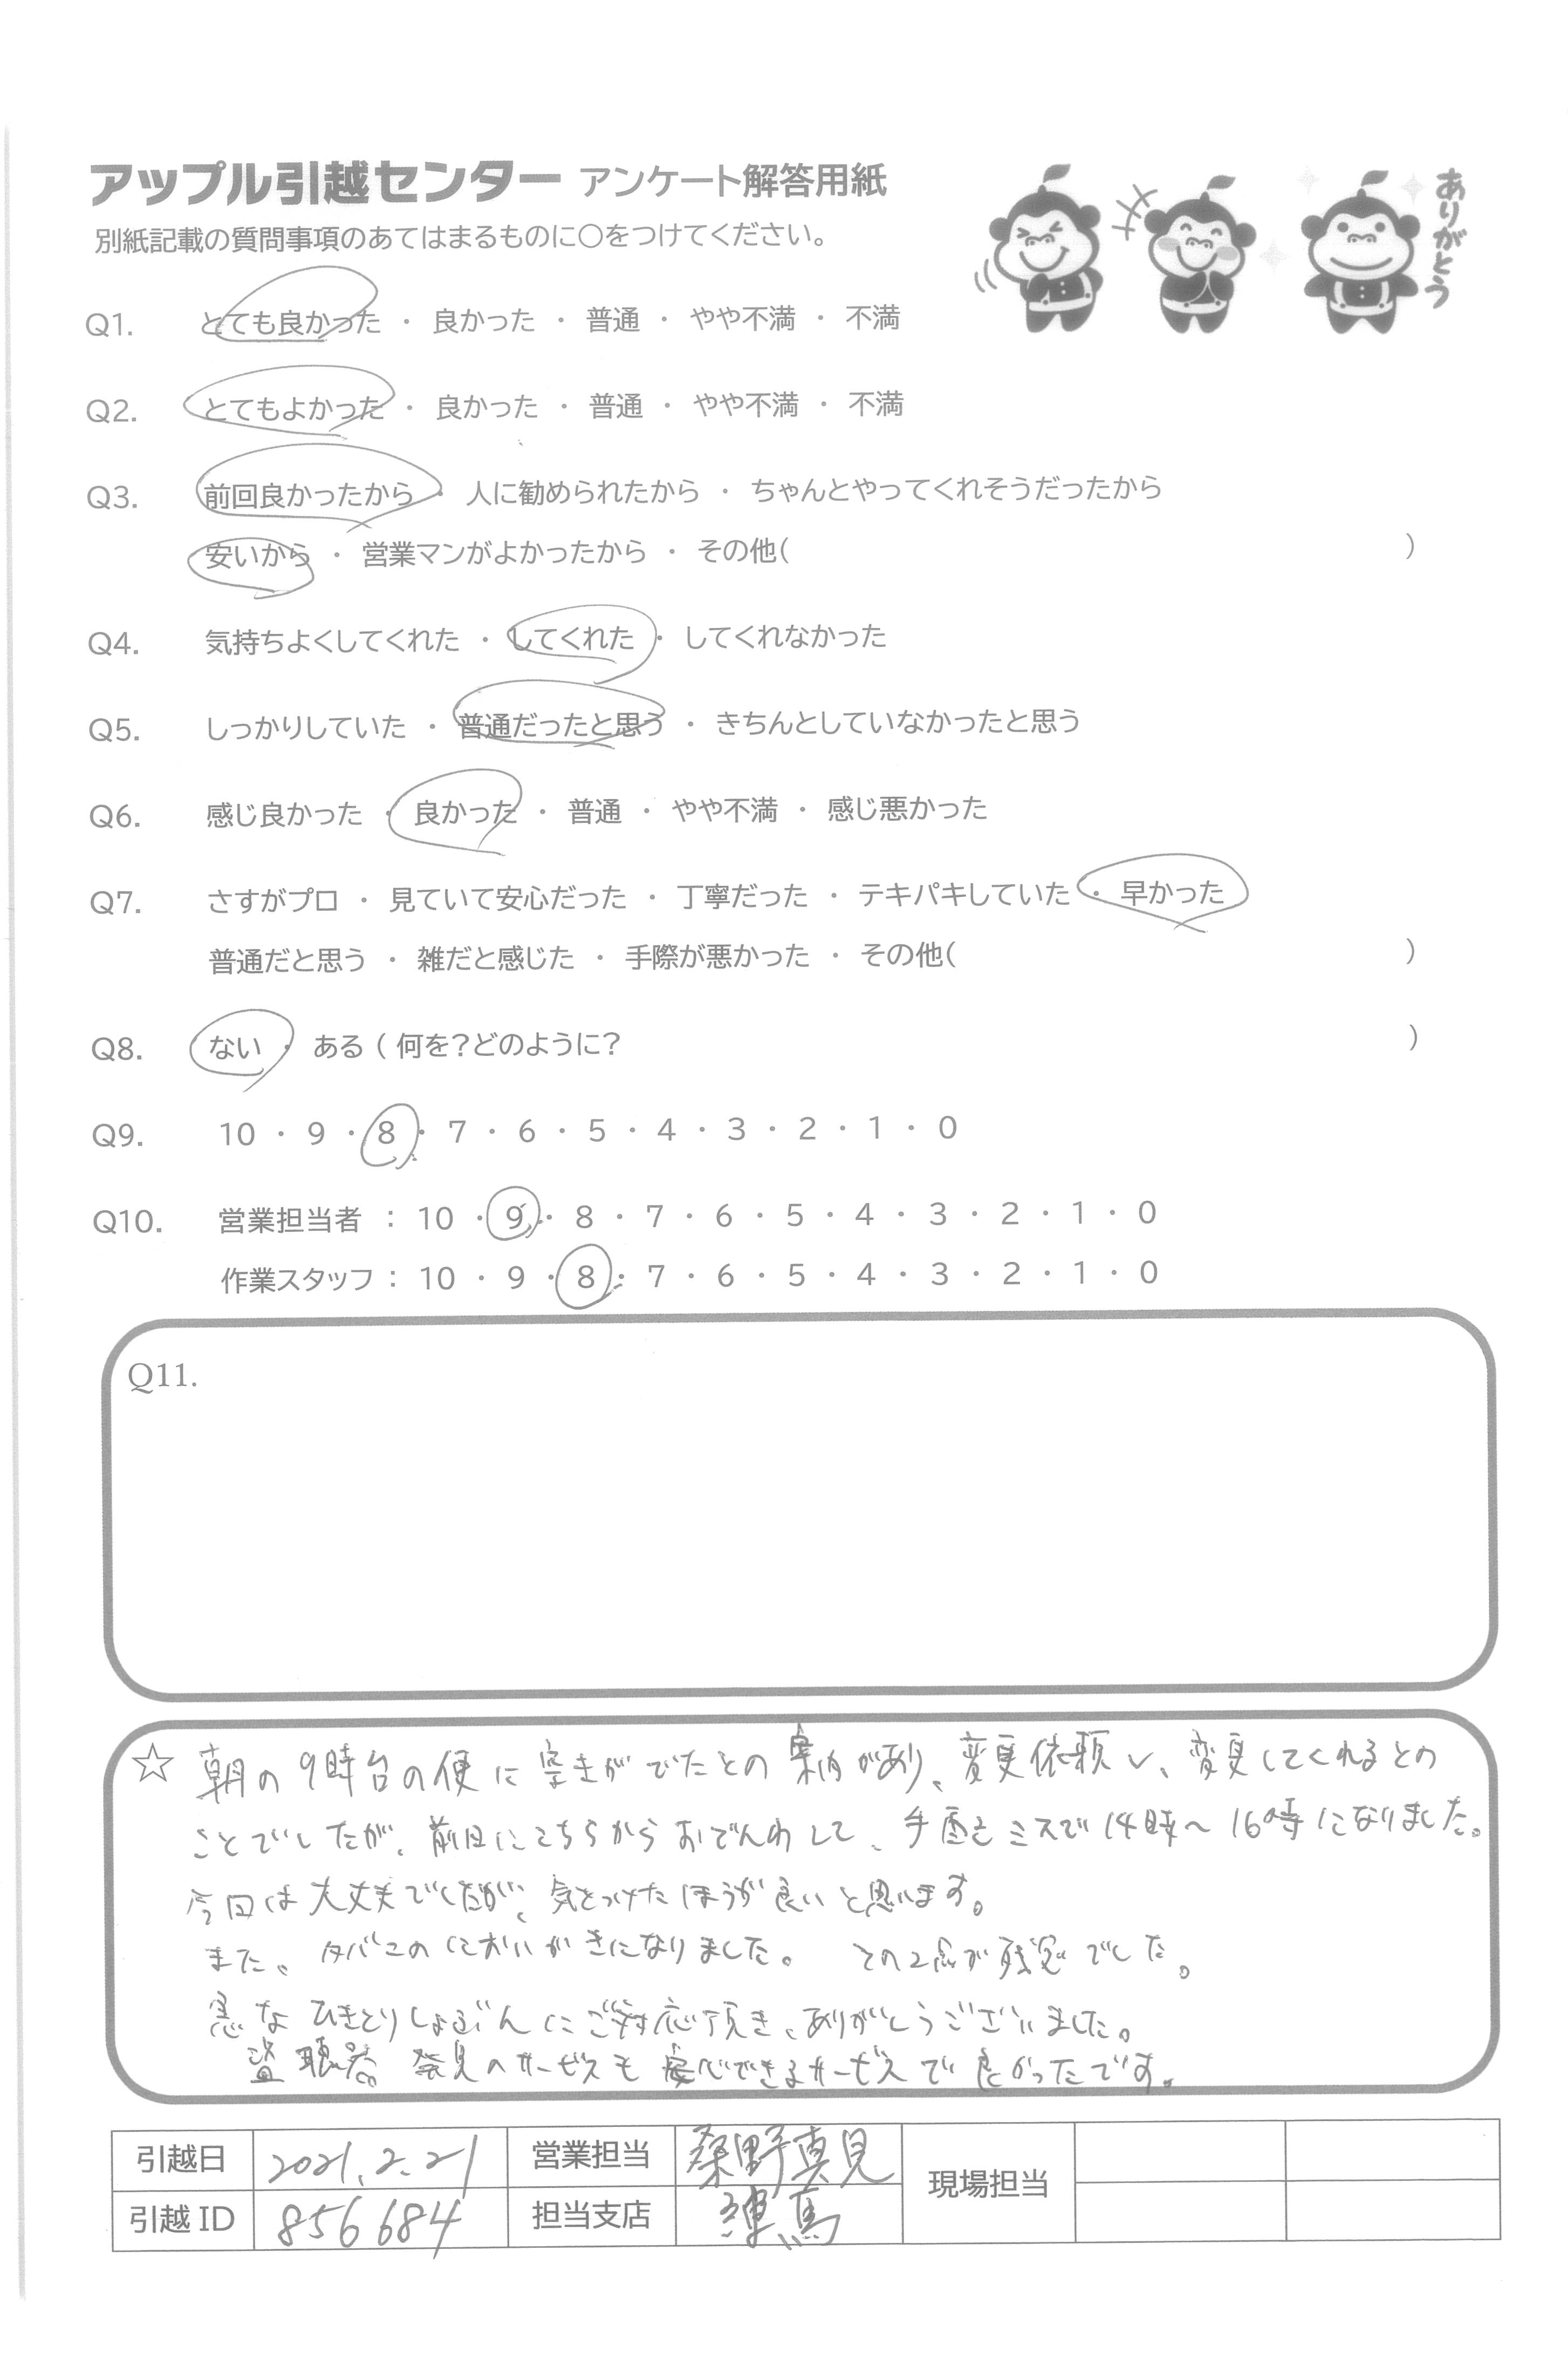 アップル引越センター アンケート解答用紙
別紙記載の質問事項のあてはまるものに○をつけてください。
ありがとう
Q1. とても良かった ・ 良かった ・ 普通 ・ やや不満 ・ 不満
Q2. とてもよかった ・ 良かった ・ 普通 ・ やや不満 ・ 不満
Q3. 前回良かったから ・ 人に勧められたから ・ ちゃんとやってくれそうだったから
安いから ・ 営業マンがよかったから ・ その他( )
Q4. 気持ちよくしてくれた ・ してくれた ・ してくれなかった
Q5. しっかりしていた ・ 普通だったと思う ・ きちんとしていなかったと思う
Q6. 感じ良かった ・ 良かった ・ 普通 ・ やや不満 ・ 感じ悪かった
Q7. さすがプロ ・ 見ていて安心だった ・ 丁寧だった ・ テキパキしていた ・ 早かった
普通だと思う ・ 雑だと感じた ・ 手際が悪かった ・ その他( )
Q8. ない ・ ある ( 何を?どのように? )
Q9. 10 ・ 9 ・ 8 ・ 7 ・ 6 ・ 5 ・ 4 ・ 3 ・ 2 ・ 1 ・ 0
Q10. 営業担当者 : 10 ・ 9 ・ 8 ・ 7 ・ 6 ・ 5 ・ 4 ・ 3 ・ 2 ・ 1 ・ 0
作業スタッフ : 10 ・ 9 ・ 8 ・ 7 ・ 6 ・ 5 ・ 4 ・ 3 ・ 2 ・ 1 ・ 0
Q11.
☆ 朝の9時台の便に空きがでたとの案内があり、変更依頼し、変更してくれるとの
ことでしたが、前日にこちらからおでんわして、手配ミスで14時〜16時になりました。
今回は大丈夫でしたが、気をつけたほうが良いと思います。
また、タバコのにおいがきになりました。 その2点が残念でした。
急なひきとりしょぶんにご対応頂き、ありがとうございました。
盗聴器発見のサービスも安心できるサービスで良かったです。
引越日 2021.2.21 営業担当 桑野真見 現場担当
引越ID 856684 担当支店 練馬